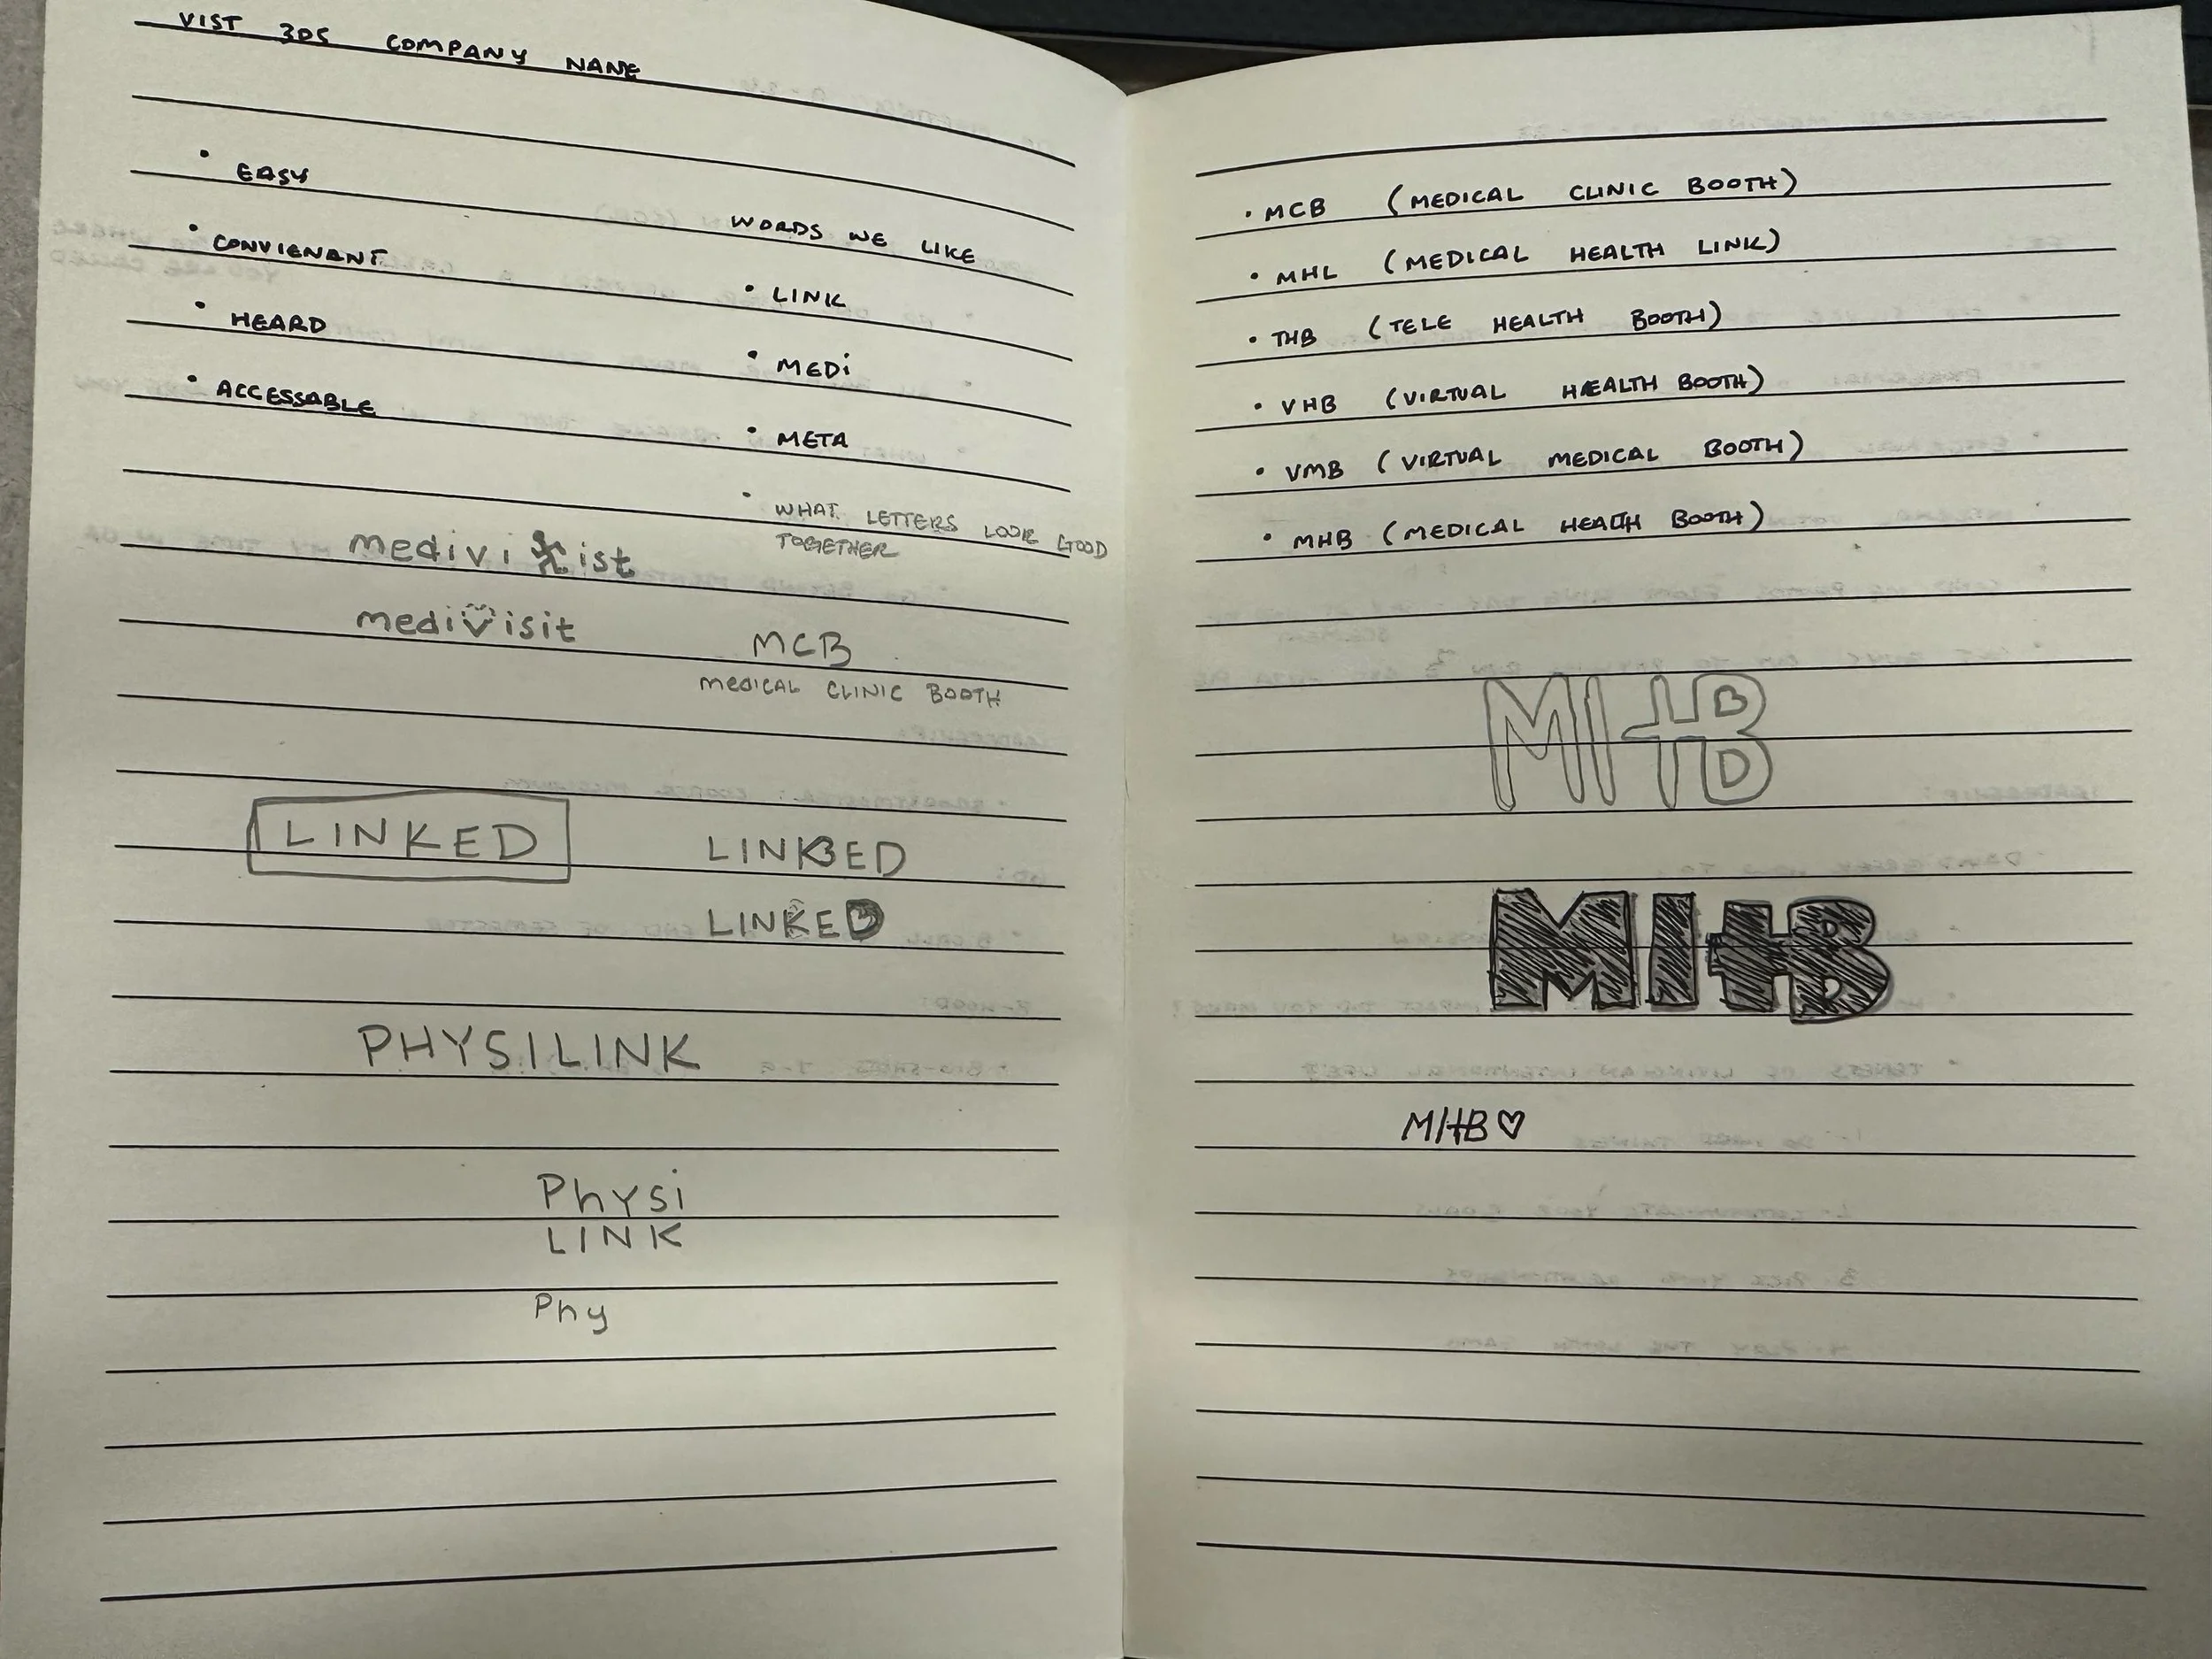 VIST 305 COMPANY NAME
• EASY
• CONVIENANT
• HEARD
• ACCESSABLE
WORDS WE LIKE
• LINK
• MEDi
• META
• WHAT LETTERS LOOK GOOD
TOGETHER
medivi ist
mediVisit
MCB
MEDICAL CLINIC BOOTH
LINKED
LINKED
LINKED
PHYSILINK
PhYSi
LINK
Phy
• MCB (MEDICAL CLINIC BOOTH)
• MHL (MEDICAL HEALTH LINK)
• THB (TELE HEALTH BOOTH)
• VHB (VIRTUAL HEALTH BOOTH)
• VMB (VIRTUAL MEDICAL BOOTH)
• MHB (MEDICAL HEALTH BOOTH)
MHB
MHB
MHB ♡